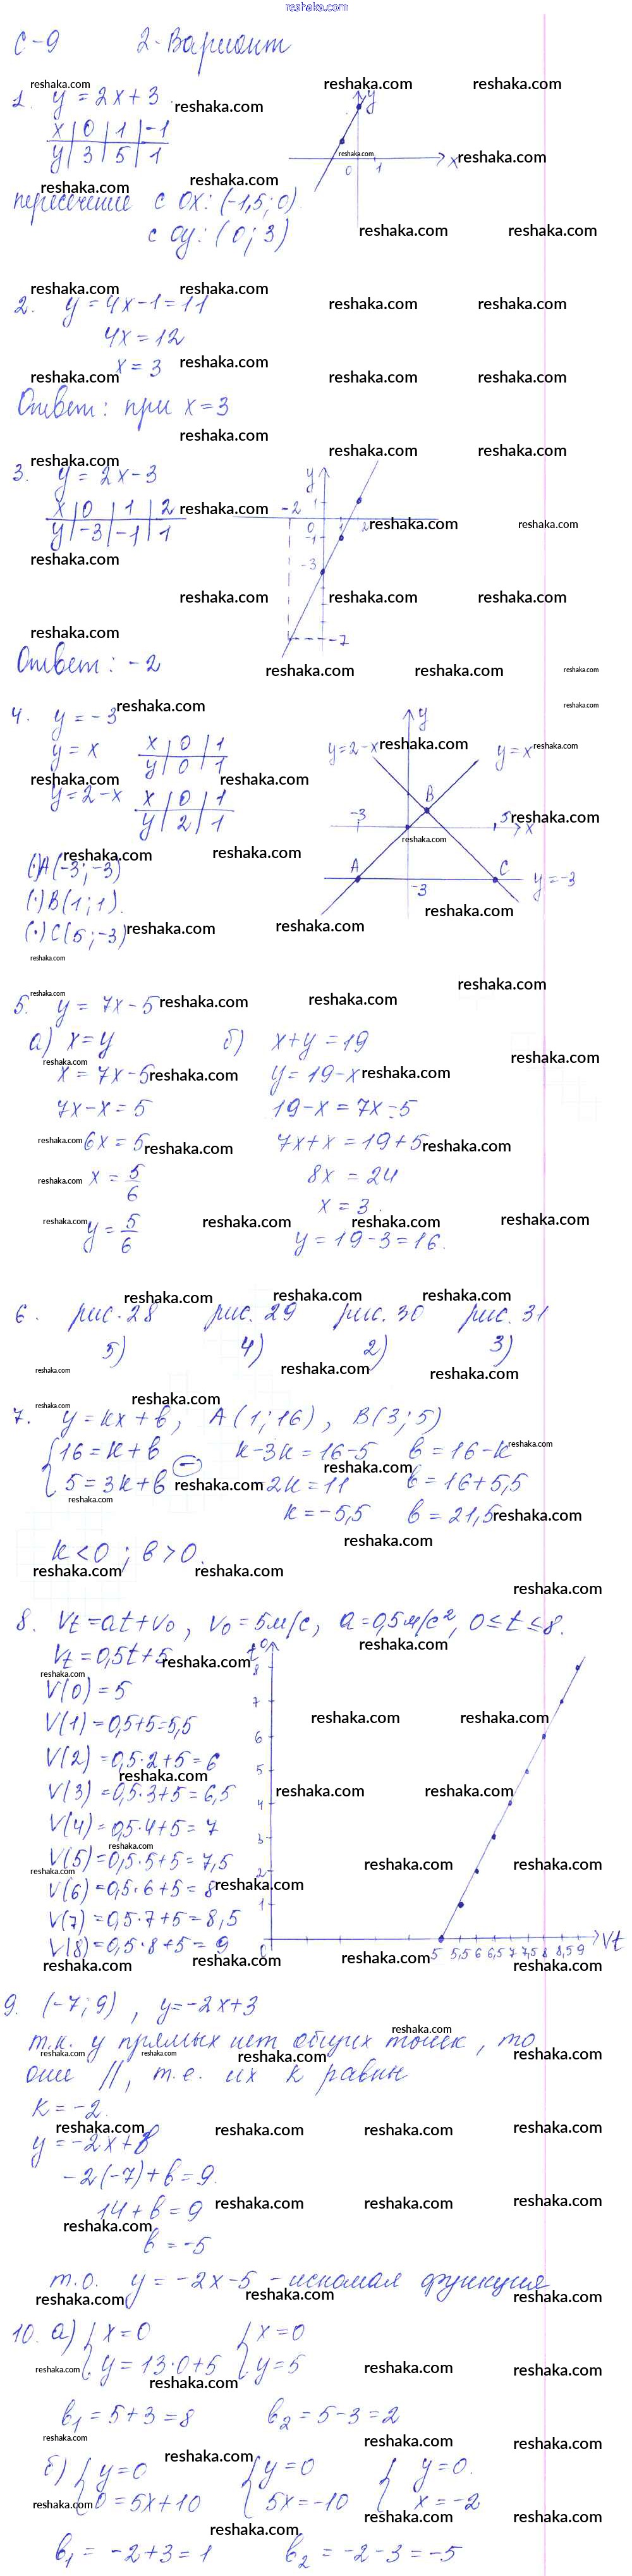 reshaka.com
С-9 2-Вариант
1. y = 2x + 3
x | 0 | 1 | -1
y | 3 | 5 | 1
y
x
0 1
пересечение с ОХ: (-1,5; 0)
с Оу: (0; 3)
2. y = 4x - 1 = 11
4x = 12
x = 3
Ответ: при x = 3
3. y = 2x - 3
x | 0 | 1 | 2
y | -3 | -1 | 1
y
1
-2 0 1 2
-1
-3
-7
Ответ: -2
4. y = -3
y = x
x | 0 | 1
y | 0 | 1
y = 2-x
x | 0 | 1
y | 2 | 1
y
y=2-x y=x
B
-3 5 x
A C
-3 y=-3
(·)A(-3; -3)
(·)B(1; 1).
(·)C(5; -3)
5. y = 7x - 5
а) x = y б) x + y = 19
x = 7x - 5 y = 19 - x
7x - x = 5 19 - x = 7x - 5
6x = 5 7x + x = 19 + 5
x = 5/6 8x = 24
x = 3.
y = 5/6 y = 19 - 3 = 16.
6. рис. 28 рис. 29 рис. 30 рис. 31
5) 4) 2) 3)
7. y = kx + b, A(1; 16), B(3; 5)
{16 = k + b k - 3k = 16 - 5 b = 16 - k
{5 = 3k + b (-) -2k = 11 b = 16 + 5,5
k = -5,5 b = 21,5
k < 0; b > 0.
8. Vt = at + v₀, v₀ = 5м/с, a = 0,5м/с², 0 ≤ t ≤ 8.
Vt = 0,5t + 5
V(0) = 5
V(1) = 0,5+5=5,5
V(2) = 0,5·2+5=6
V(3) = 0,5·3+5=6,5
V(4) = 0,5·4+5=7
V(5) = 0,5·5+5=7,5
V(6) = 0,5·6+5=8
V(7) = 0,5·7+5=8,5
V(8) = 0,5·8+5=9
8
7
6
5
4
3
2
1
0 5 5,5 6 6,5 7 7,5 8 8,5 9 Vt
9. (-7; 9), y = -2x + 3
т.к. у прямых нет общих точек, то
они //, т.е. их k равны
k = -2.
y = -2x + b
-2(-7) + b = 9.
14 + b = 9
b = -5
т.о. y = -2x - 5 - искомая функция
10. а) {x = 0 {x = 0
{y = 13·0 + 5 {y = 5
b₁ = 5 + 3 = 8 b₂ = 5 - 3 = 2
б) {y = 0 {y = 0 {y = 0.
{0 = 5x + 10 {5x = -10 {x = -2
b₁ = -2 + 3 = 1 b₂ = -2 - 3 = -5